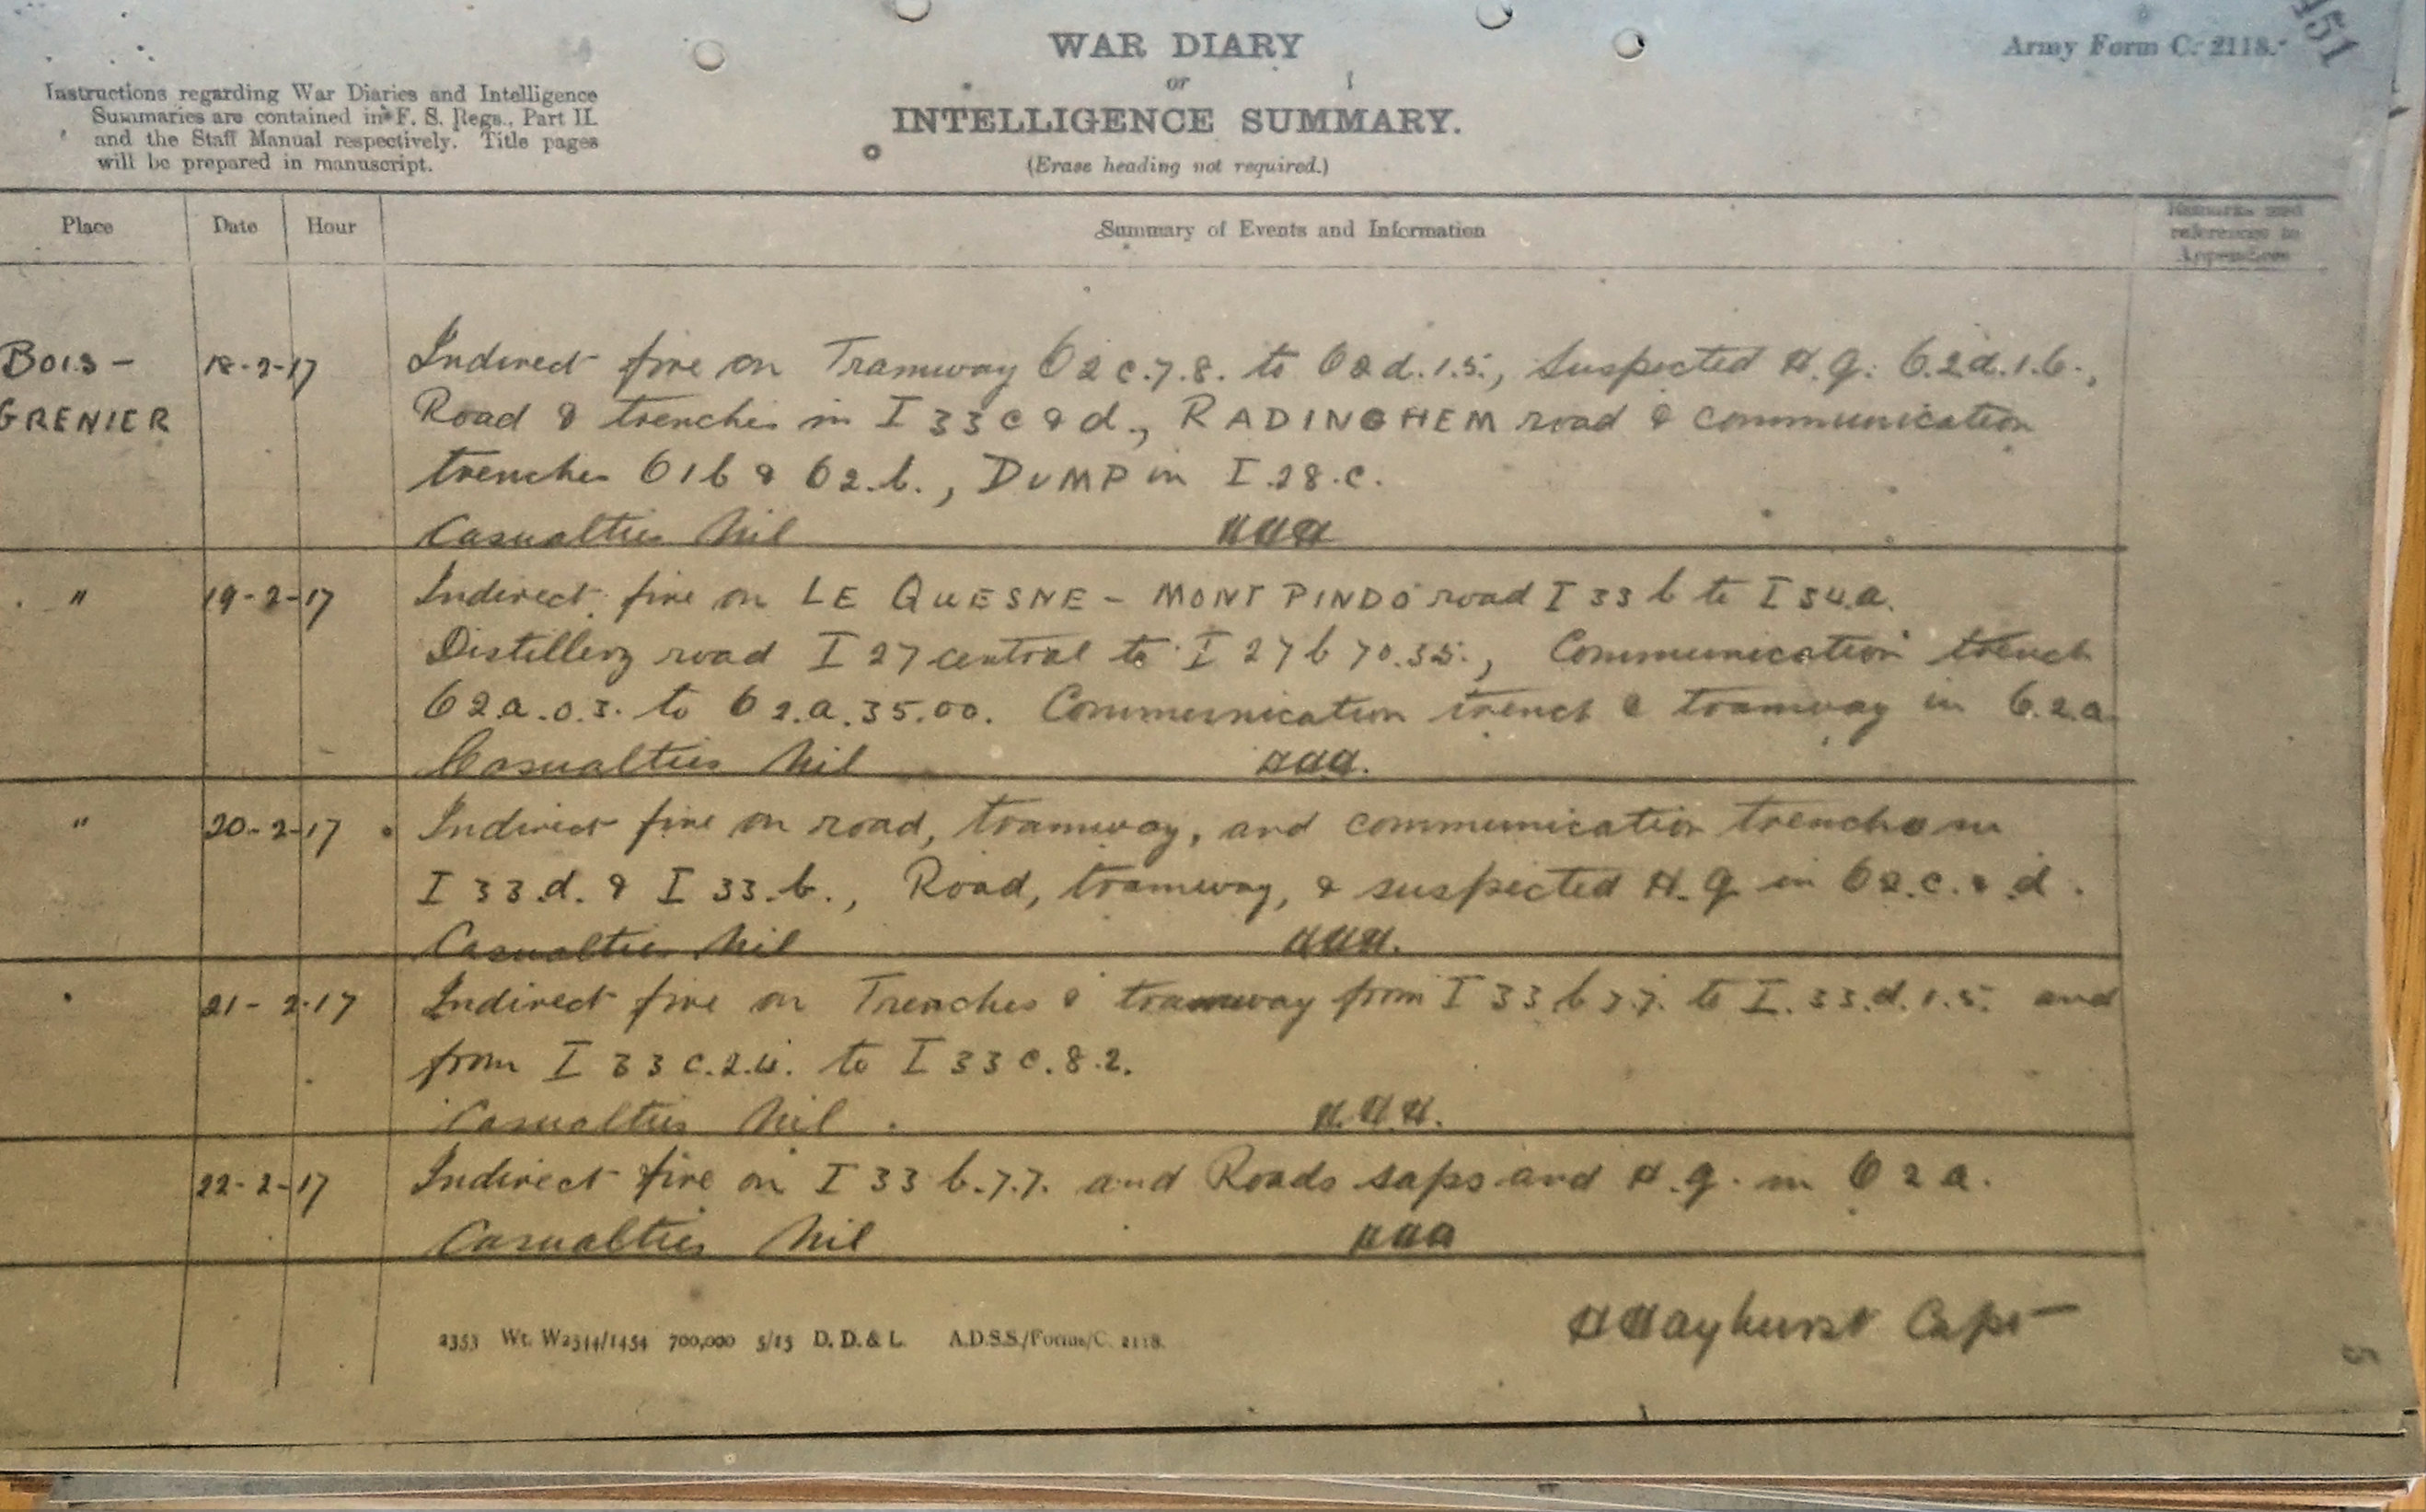 451
Army Form C. 2118.
WAR DIARY
or
INTELLIGENCE SUMMARY.
(Erase heading not required.)
Instructions regarding War Diaries and Intelligence
Summaries are contained in F. S. Regs., Part II.
and the Staff Manual respectively. Title pages
will be prepared in manuscript.
Place Date Hour Summary of Events and Information Remarks and
references to
Appendices
BOIS - 18-2-17 Indirect fire on Tramway O2c.7.8. to O2d.1.5., Suspected H.Q. O.2d.1.6.,
GRENIER Road & trenches in I 33 c & d., RADINGHEM road & communication
trenches O1b & O2.b., DUMP in I.28.c.
Casualties Nil
" 19-2-17 Indirect fire on LE QUESNE - MONT PINDO road I 33 b to I 34.a.
Distillery road I 27 central to I 27 b 70.35., Communication trench
O2.a.0.3. to O2.a.35.00. Communication trench & tramway in O.2.a.
Casualties Nil
" 20-2-17 Indirect fire on road, tramway, and communication trench in
I 33.d. & I 33.b., Road, tramway, & suspected H.Q in O2.c. & d.
Casualties Nil
21-2-17 Indirect fire on Trenches & tramway from I 33 b 7.7. to I.33.d.1.5. and
from I 33 c.2.4. to I 33 c.8.2.
Casualties Nil.
22-2-17 Indirect fire on I 33 b.7.7. and Roads saps and H.Q. in O2a.
Casualties Nil
Hayhurst Capt
2353 Wt. W2544/1454 700,000 5/15 D. D. & L. A.D.S.S./Forms/C. 2118.